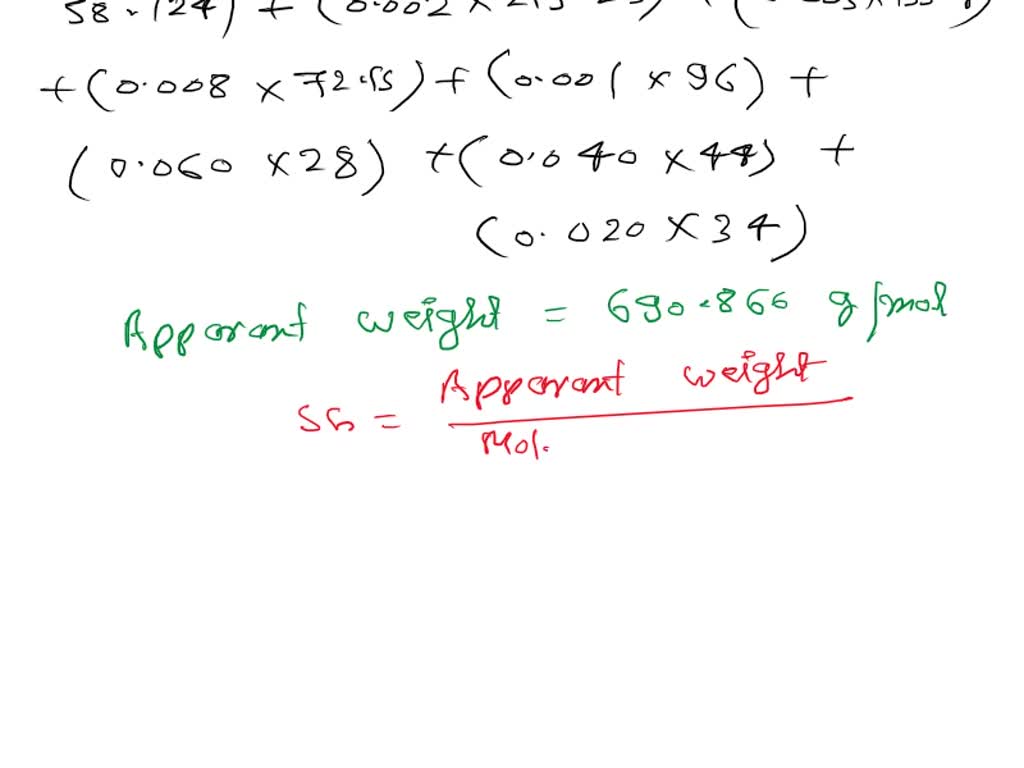 58.124) + (0.002 ×
+ (0.008 × 72.15) + (0.001 × 96) +
(0.060 × 28) + (0.040 × 44) +
(0.020 × 34)
Apparant weight = 690.866 g/mol
SG = Apparant weight
Mol.